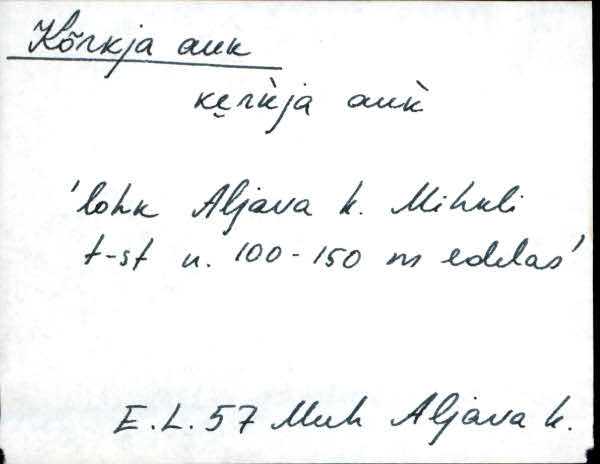 Kõrkja auk
kęrk̀ja auk̀
'lohk Aljava k. Mihkli
t-st u. 100-150 m edelas'
E.L. 57 Muh Aljava k.